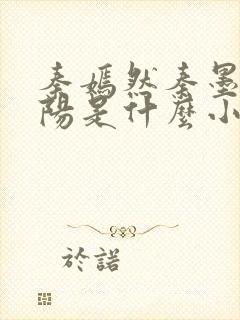 秦嫣然秦墨
陽是什麼小
於諾